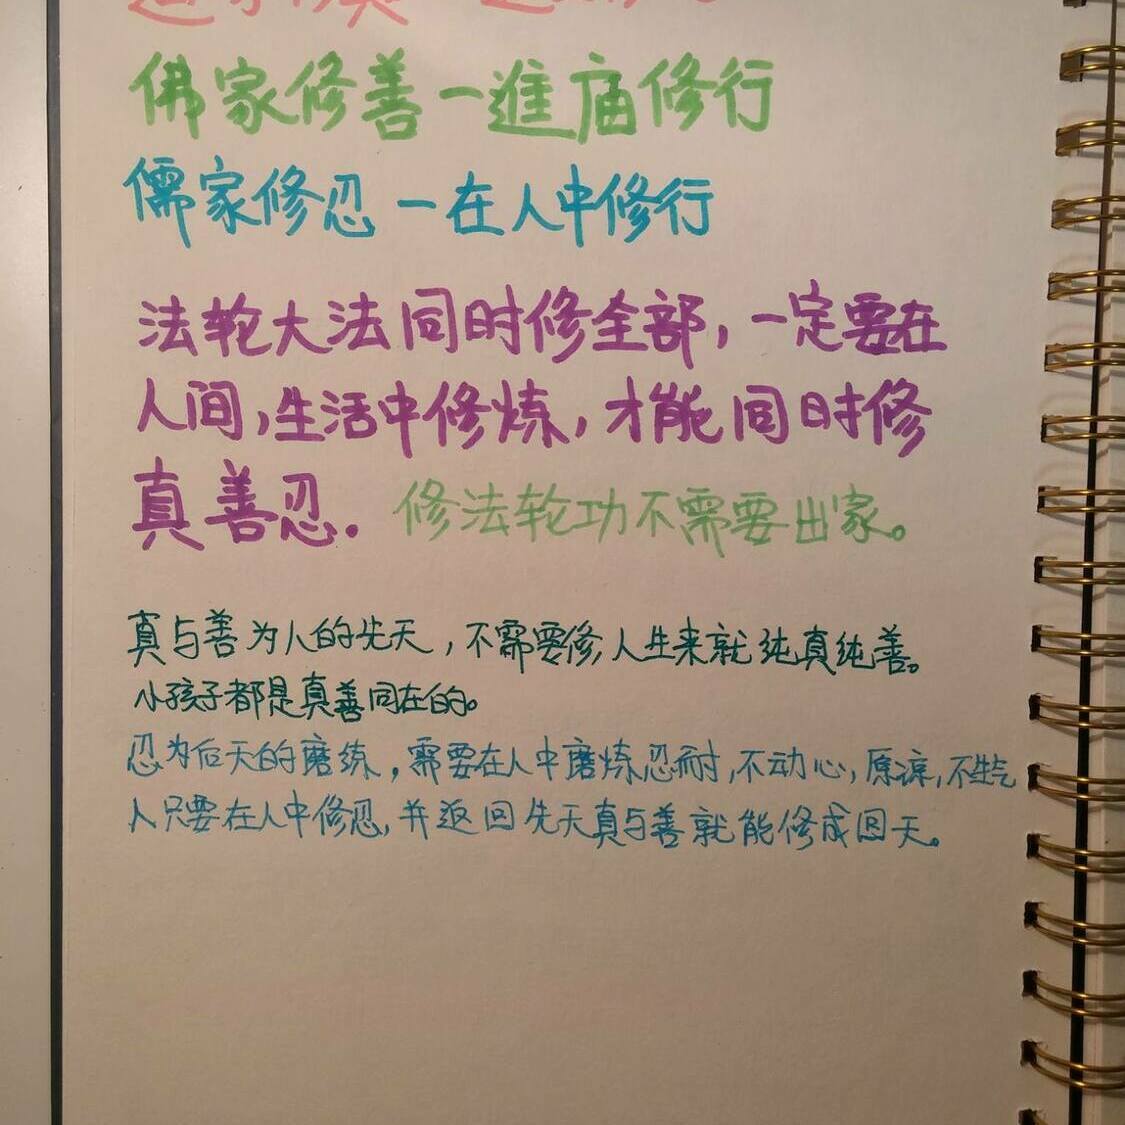 佛家修善一進庙修行
儒家修忍一在人中修行
法轮大法同时修全部,一定要在
人间,生活中修炼,才能同时修
真善忍. 修法轮功不需要出家。
真与善为人的先天,不需要修,人生来就纯真纯善。
小孩子都是真善同在的。
忍为后天的磨练,需要在人中磨炼忍耐,不动心,原谅,不生气
人只要在人中修忍,并返回先天真与善就能修成回天。